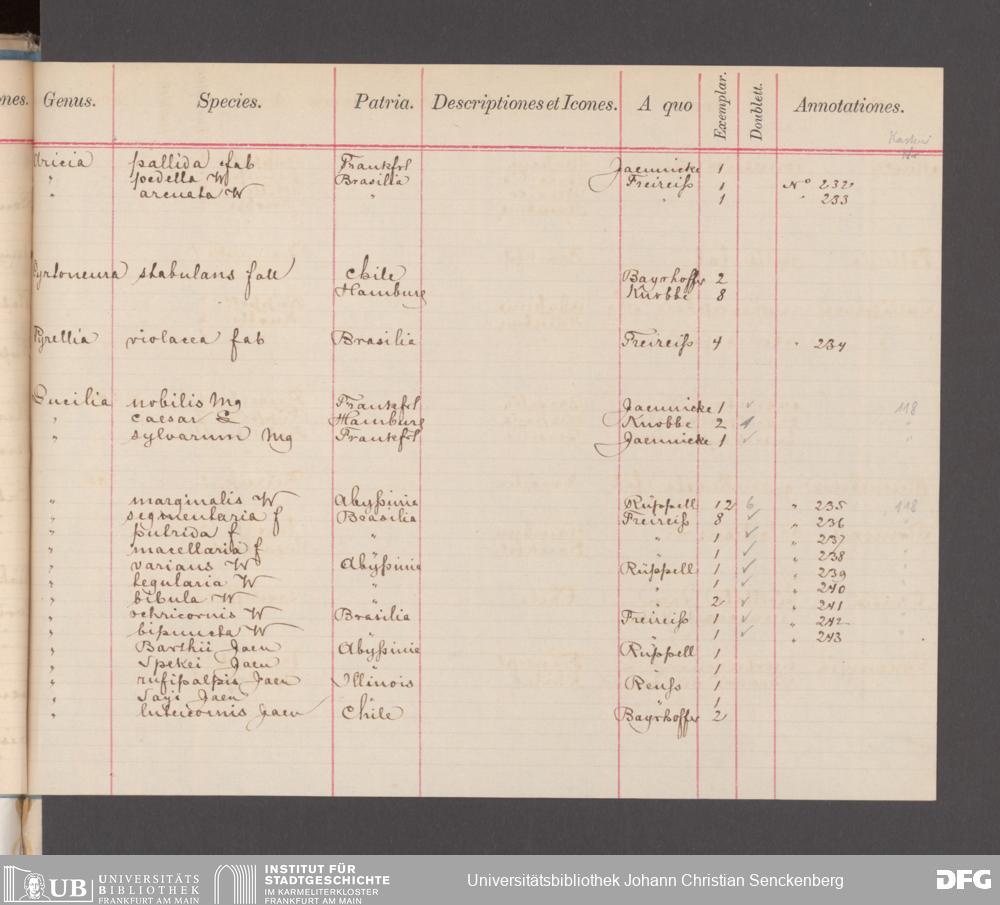 nes. Genus. Species. Patria. Descriptiones et Icones. A quo Exemplar. Doublett. Annotationes.
Aricia pallida fab Frankfrt Jaennicke 1
" pedella W Brasilia Freireiß 1 No 232
" arcuata W " " 1 " 233
Cyrtoneura stabulans fall Chile Bayrhoffer 2
Hamburg Knobbe 8
Pyrellia violacea fab Brasilia Freireiß 4 " 234
Lucilia nobilis Mg Frankfrt Jaennicke 1 ✓ 118
" caesar L Hamburg Knobbe 2 1 "
" sylvarum Mg Frankfrt Jaennicke 1 ✓ "
" marginalis W Abyßinie Rüppell 12 6 " 235 118
" segmentaria f Brasilia Freireiß 8 ✓ " 236 "
" putrida f " " 1 ✓ " 237 "
" macellaria f " " 1 ✓ " 238 "
" varians W Abyßinie Rüppell 1 ✓ " 239 "
" tegularia W " " 1 ✓ " 240 "
" bibula W " " 2 ✓ " 241 "
" ochricornis W Brasilia Freireiß 1 ✓ " 242 "
" bipuncta W " " 1 ✓ " 243 "
" Barthii Jaen Abyßinie Rüppell 1
" Spekei Jaen " " 1
" rufipalpis Jaen Illinois Reuß 1
" Sayi Jaen " " 1
" luteicornis Jaen Chile Bayrhoffer 2
UB UNIVERSITÄTS BIBLIOTHEK FRANKFURT AM MAIN
INSTITUT FÜR STADTGESCHICHTE IM KARMELITERKLOSTER FRANKFURT AM MAIN
Universitätsbibliothek Johann Christian Senckenberg
DFG